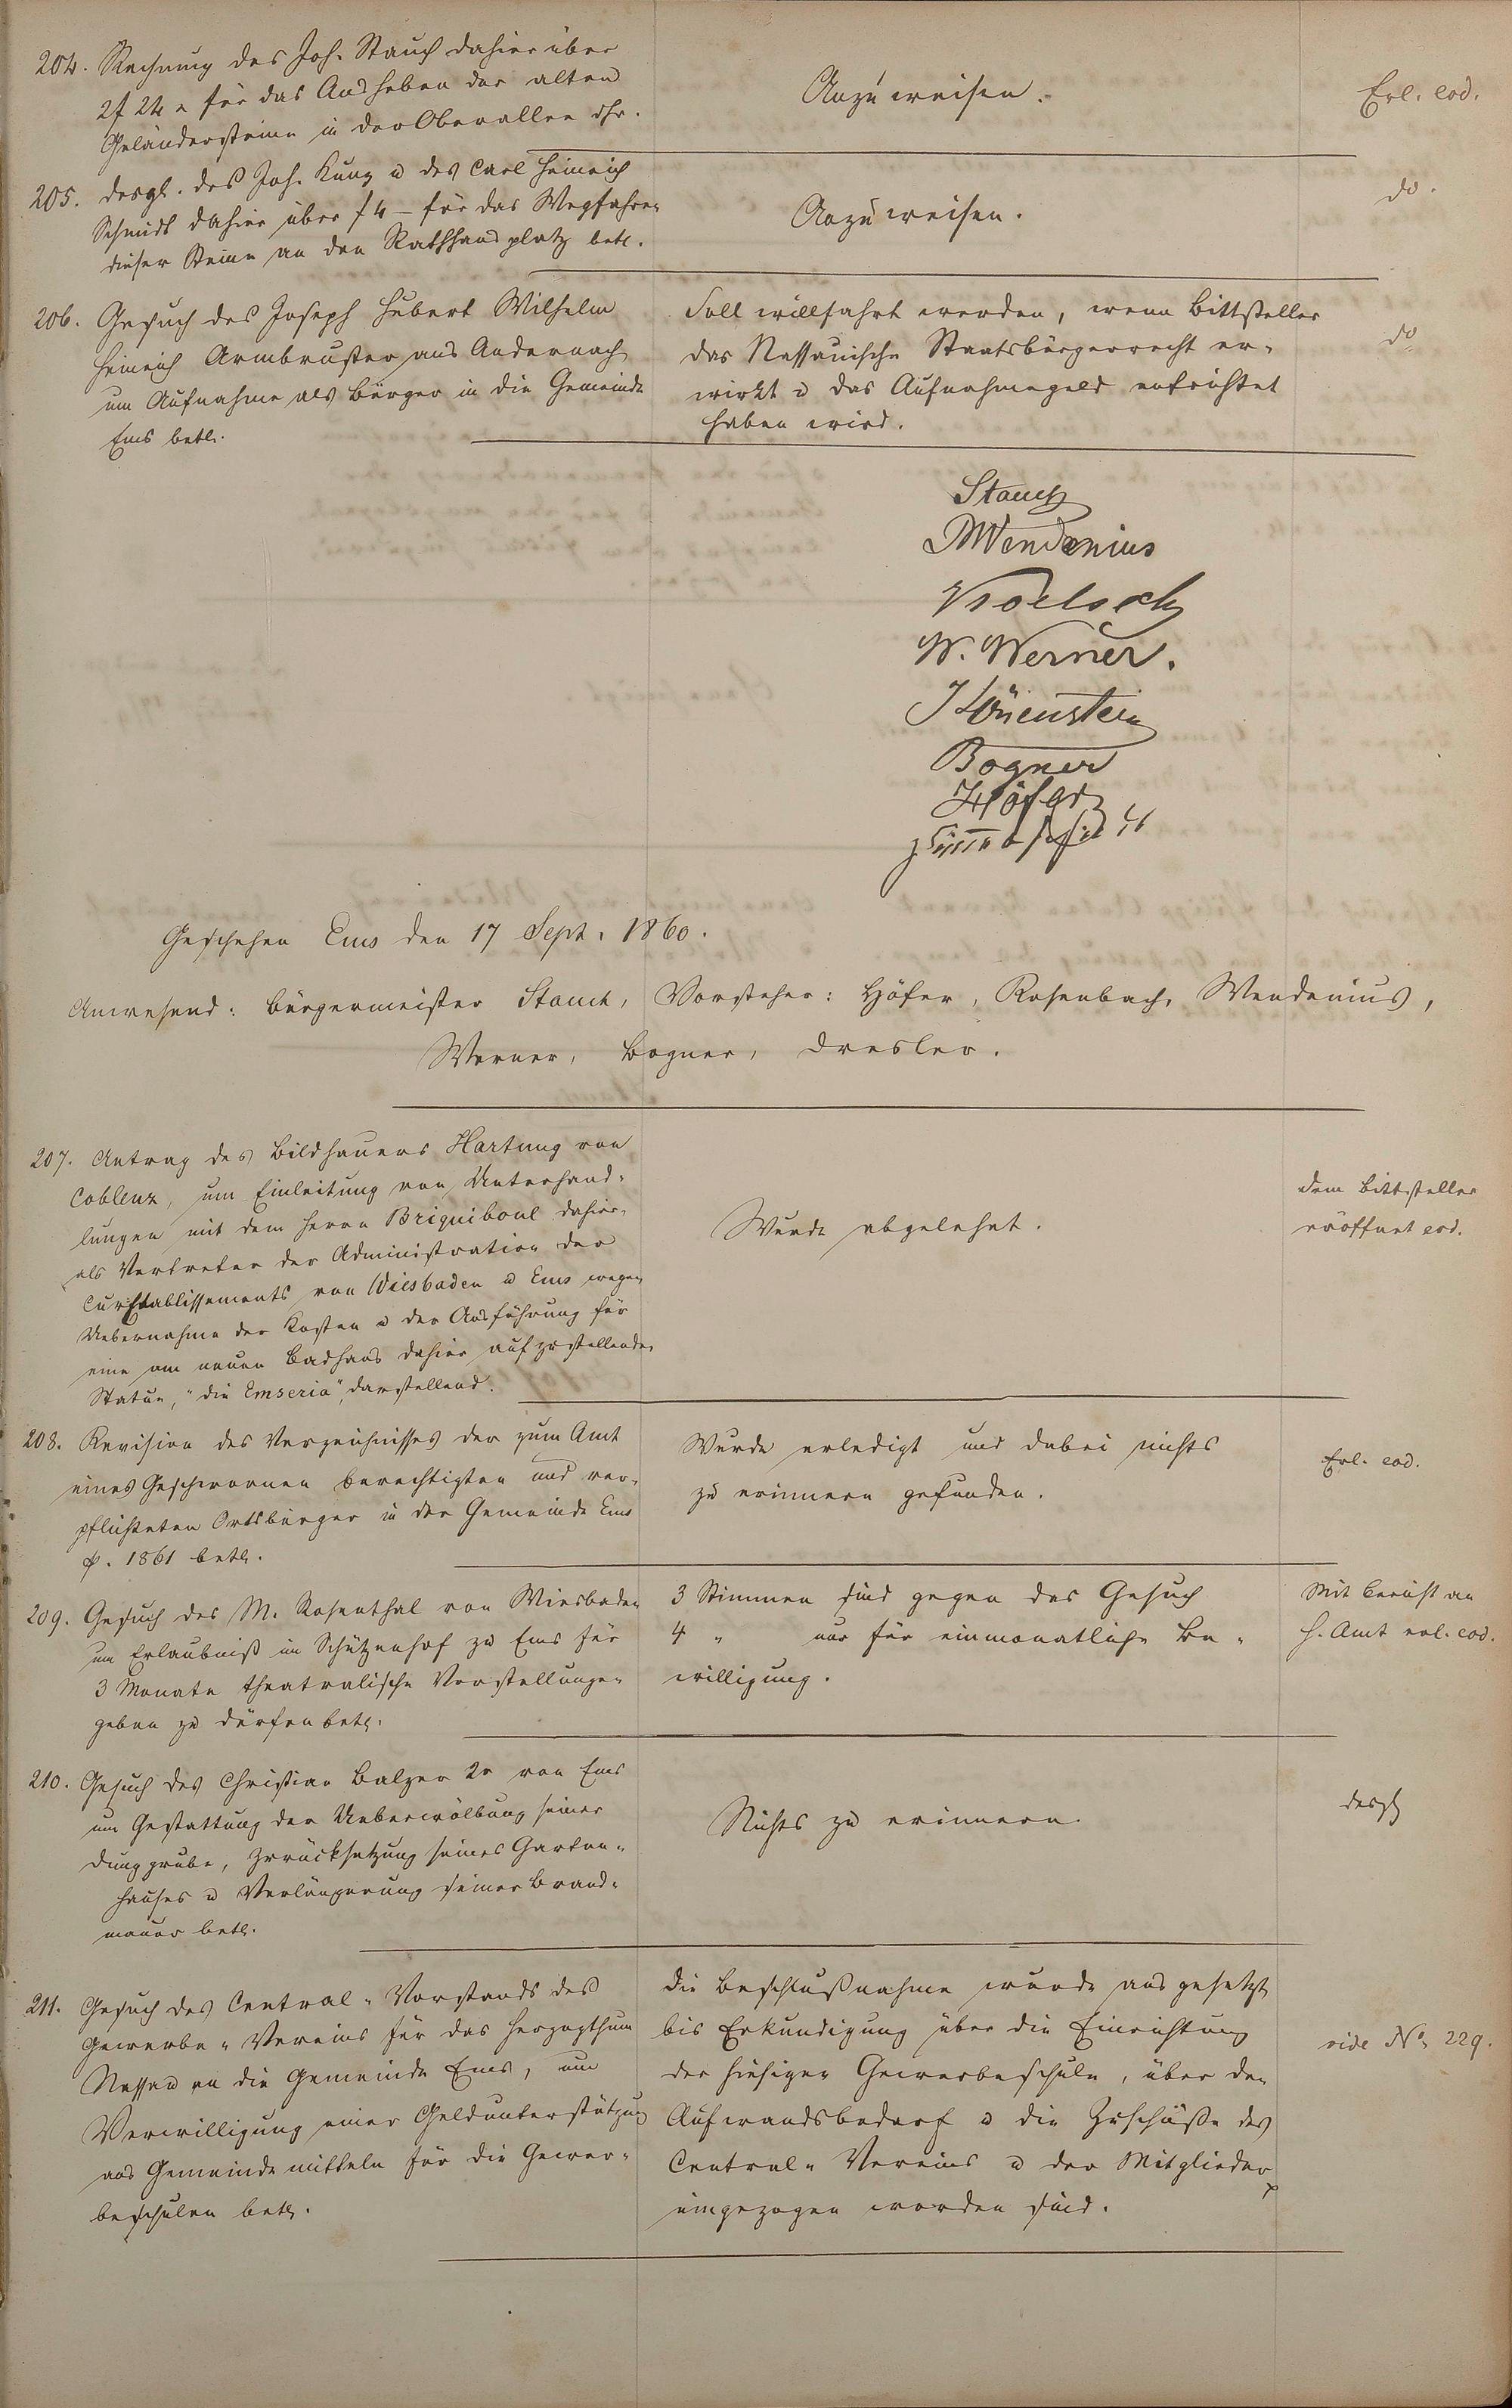 204. Rechnung des Joh. Stauch dahier über
2f 24 x für das Ausheben der alten
Geländersteine in der Oberallee dhr.
Anzuweisen.
Erl. eod.
205. desgl. des Joh. Kunz u des Carl Heinrich
Schmidt dahier über f 4 – für das Wegfahren
dieser Steine an den Rathhausplatz betr.
Anzuweisen.
do.
206. Gesuch des Joseph Hubert Wilhelm
Heinrich Armbruster aus Andernach
um Aufnahme als Bürger in die Gemeinde
Ems betr.
Soll willfahrt werden, wenn Bittsteller
das Nassauische Staatsbürgerrecht er-
wirkt u das Aufnahmegeld entrichtet
haben wird.
do
Stauch
Wendenius
W. Werner.
Bogner
Höfer
Geschehen Ems den 17 Sept. 1860.
Anwesend: Bürgermeister Stauch, Vorsteher: Höfer, Rosenbach, Wendenius,
Werner, Bogner, Dresler.
207. Antrag des Bildhauers Hartung von
Coblenz, um Einleitung von Unterhand-
lungen mit dem Herrn Briguiboul dahier,
als Vertreter der Administration der
CurEtablissements von Wiesbaden u Ems wegen
Uebernahme der Kosten u der Ausführung für
eine am neuen Badhaus dahier aufzustellende
Statue, "die Emseria", darstellend.
Wurde abgelehnt.
dem Bittsteller
eröffnet eod.
208. Revision des Verzeichnisses der zum Amt
eines Geschwornen berechtigten und ver-
pflichteten Ortsbürger in der Gemeinde Ems
p. 1861 betr.
Wurde erledigt und dabei nichts
zu erinnern gefunden.
Erl. eod.
209. Gesuch des M. Rosenthal von Wiesbaden
um Erlaubniß im Schützenhof zu Ems für
3 Monate theatralische Vorstellungen
geben zu dürfen betr.
3 Stimmen sind gegen das Gesuch
4 " nur für einmonatliche Be-
willigung.
Mit Bericht an
H. Amt erl. eod.
210. Gesuch des Christian Balzer 2r von Ems
um Gestattung der Ueberwölbung seiner
Dunggrube, Zurücksetzung seines Garten-
hauses u Verlängerung seiner Brand-
mauer betr.
Nichts zu erinnern.
desgl
211. Gesuch des Central-Vorstands des
Gewerbe-Vereins für das Herzogthum
Nassau an die Gemeinde Ems, um
Verwilligung einer Geldunterstützung
aus Gemeindemitteln für die Gewer-
beschulen betr.
Die Beschlußnahme wurde ausgesetzt
bis Erkundigung über die Einrichtung
der hiesigen Gewerbeschule, über den
Aufwandsbedarf u die Zuschüsse des
Central-Vereins u der Mitglieder
eingezogen worden sind.
vide No. 229.